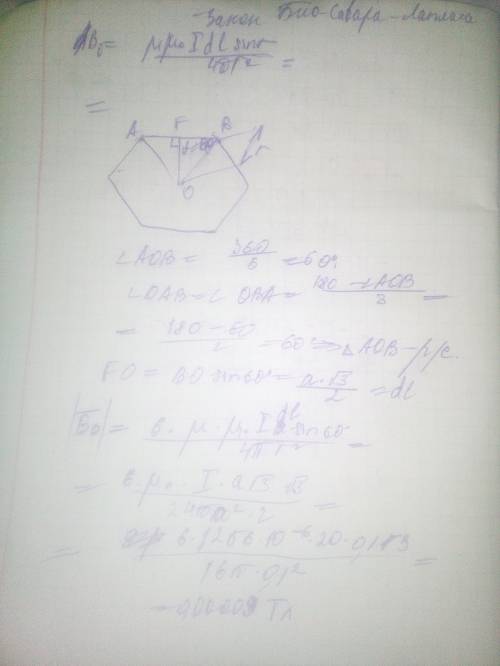 Закон Био-Савара-Лапласа
dB₀ = μμ₀ I dl sinα / 4πr² =
=
A F B
α=60°
r
O
∠AOB = 360 / 6 = 60°
∠OAB = ∠OBA = 180 - ∠AOB / 2 =
= 180 - 60 / 2 = 60° => △AOB - р/с.
FO = BO sin 60° = a·√3 / 2 = dl
|B₀| = 6·μ·μ₀ I dl sin 60 / 4πr² =
= 6·μ₀·I·a√3 √3 / 2·4πa²·2 =
= 6·1,256·10⁻⁶·20·0,1·3 / 16π·0,1² =
Тл